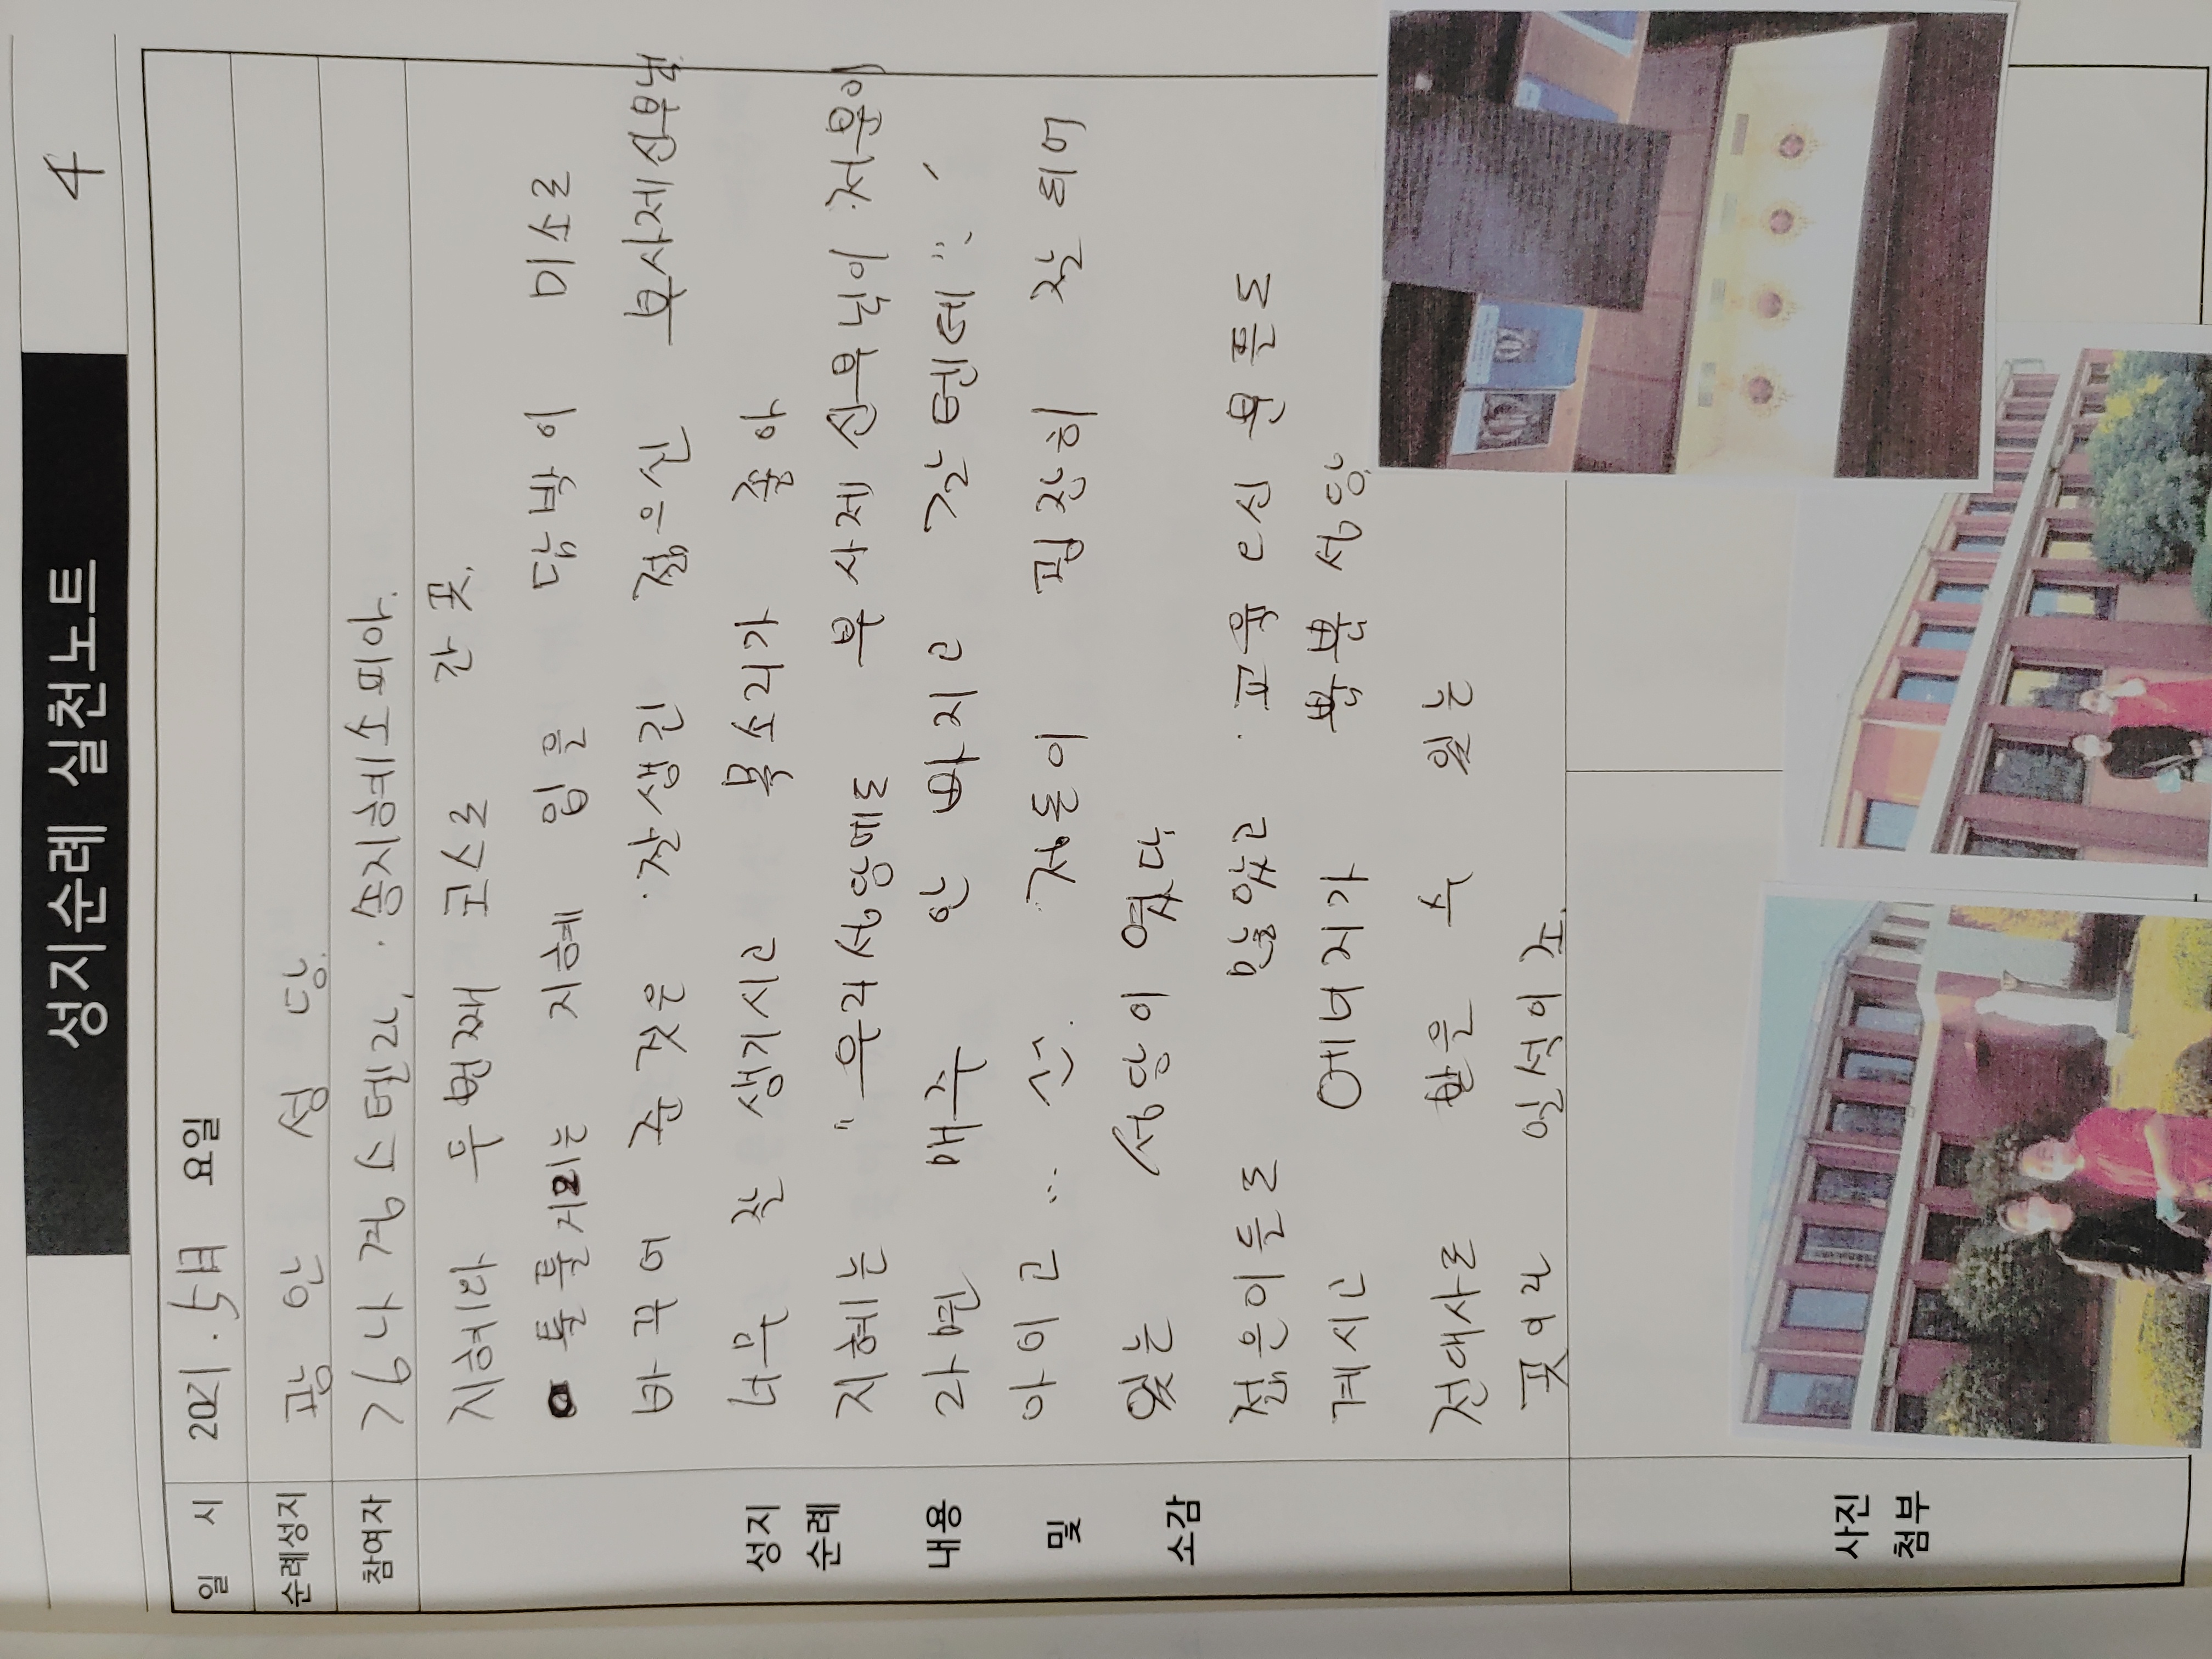 성지순례 실천노트
4
일 시 2021. 5月 요일
순례성지 광안 성당.
참여자 김나경스텔라, 송지혜소피아.
성지
순례
내용
및
소감
지혜랑 두번째 코스로 간곳.
툴툴거리는 지혜 입을 담박에 미소로
바꾸어 준것은 잘생긴 젊으신 부사제신부님
너무 잘 생기시고 목소리가 좋아
지혜는 "우리성당에도 부사제 신부님이 저분이
라면 매주 안빠지고 갈텐데"..
아이고... 정돈이 굉장히 잘 되어
있는 성당이였다.
젊은이들도 많았고 교육e신 분들도
계시고 에너지가 빡빡 성당.
전대사로 받을 수 있는
곳이라 일석이조.
사진
첨부